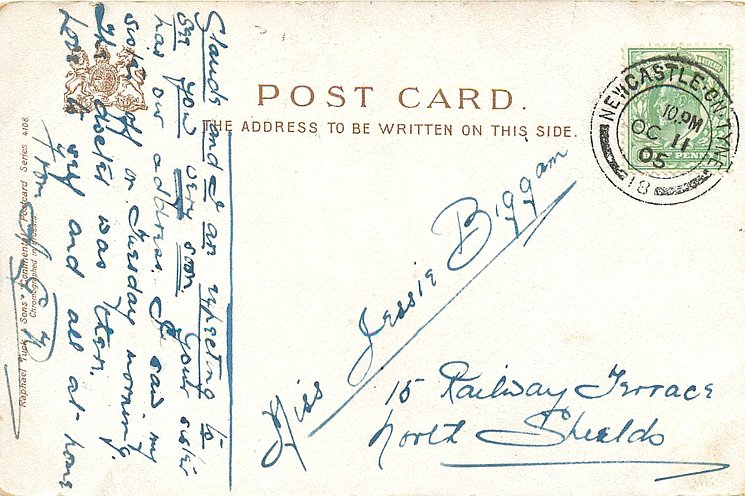 POST CARD.
THE ADDRESS TO BE WRITTEN ON THIS SIDE.
NEWCASTLE-ON-TYNE
10.PM
OC 11
05
18
PENNY
Miss Jessie Biggam
15 Railway Terrace
North Shields
and I an expecting to
see you very soon your sister
has our address. I saw my
sister off on Tuesday morning.
The doctor was there.
Love to self and all at home
from
Raphael Tuck & Sons' Continental Postcard Series 4106
Chromographed in